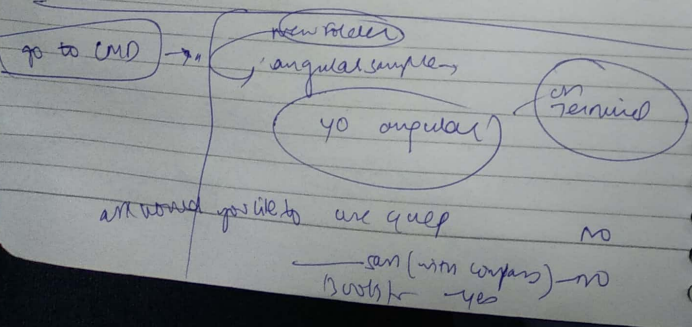 new folder
go to CMD → angularsample
yo angular
on Terminal
ask would you like to use gulp NO
sass (with compass) - NO
Bootstr - yes